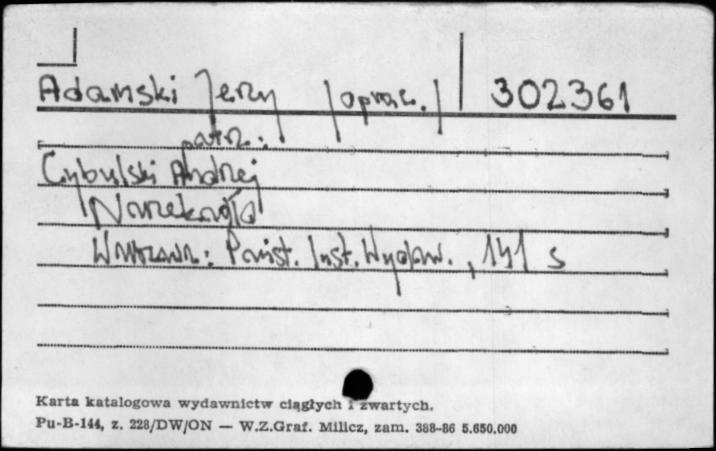 Adamski Jerzy /oprac./ 302361
patrz:
Cybulski Andrzej
Narzekajła
Warszawa: Państ. Inst. Wydaw., 141 s
Karta katalogowa wydawnictw ciągłych i zwartych.
Pu-B-144, z. 228/DW/ON — W.Z.Graf. Milicz, zam. 388-86 5.650.000